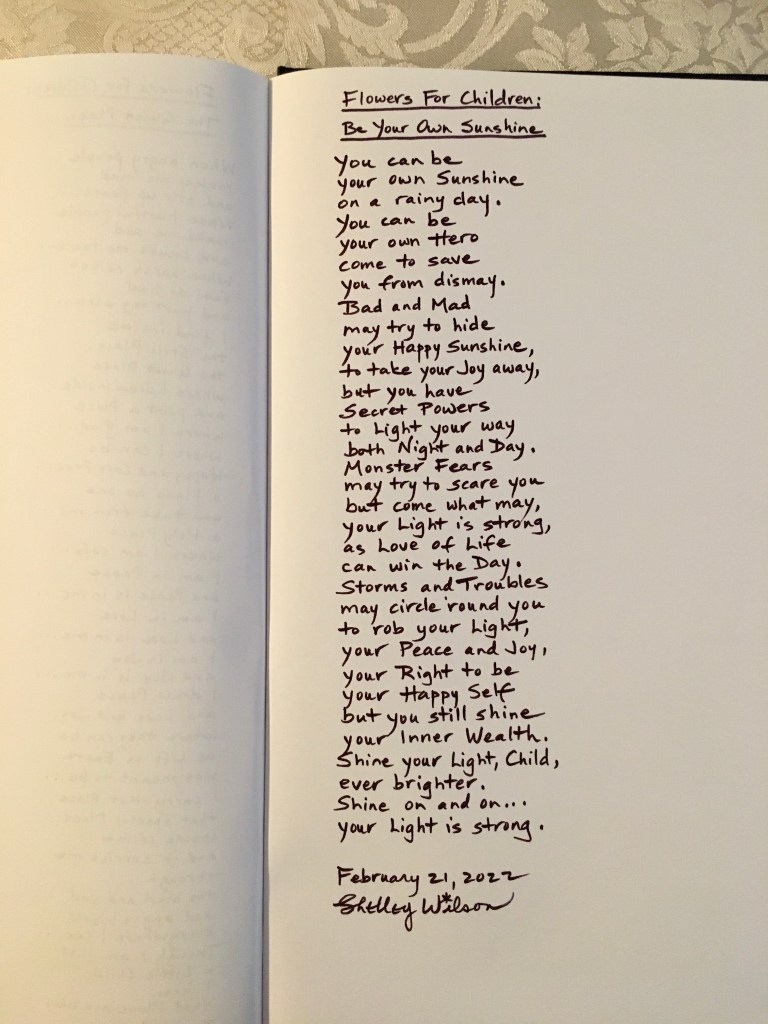 Flowers For Children:
Be Your Own Sunshine
You can be
your own Sunshine
on a rainy day.
You can be
your own Hero
come to save
you from dismay.
Bad and Mad
may try to hide
your Happy Sunshine,
to take your Joy away,
but you have
Secret Powers
to Light your way
both Night and Day.
Monster Fears
may try to scare you
but come what may,
your Light is strong,
as Love of Life
can win the Day.
Storms and Troubles
may circle 'round you
to rob your Light,
your Peace and Joy,
your Right to be
your Happy Self
but you still shine
your Inner Wealth.
Shine your Light, Child,
ever brighter.
Shine on and on...
your Light is strong.
February 21, 2022
Shelley Wilson